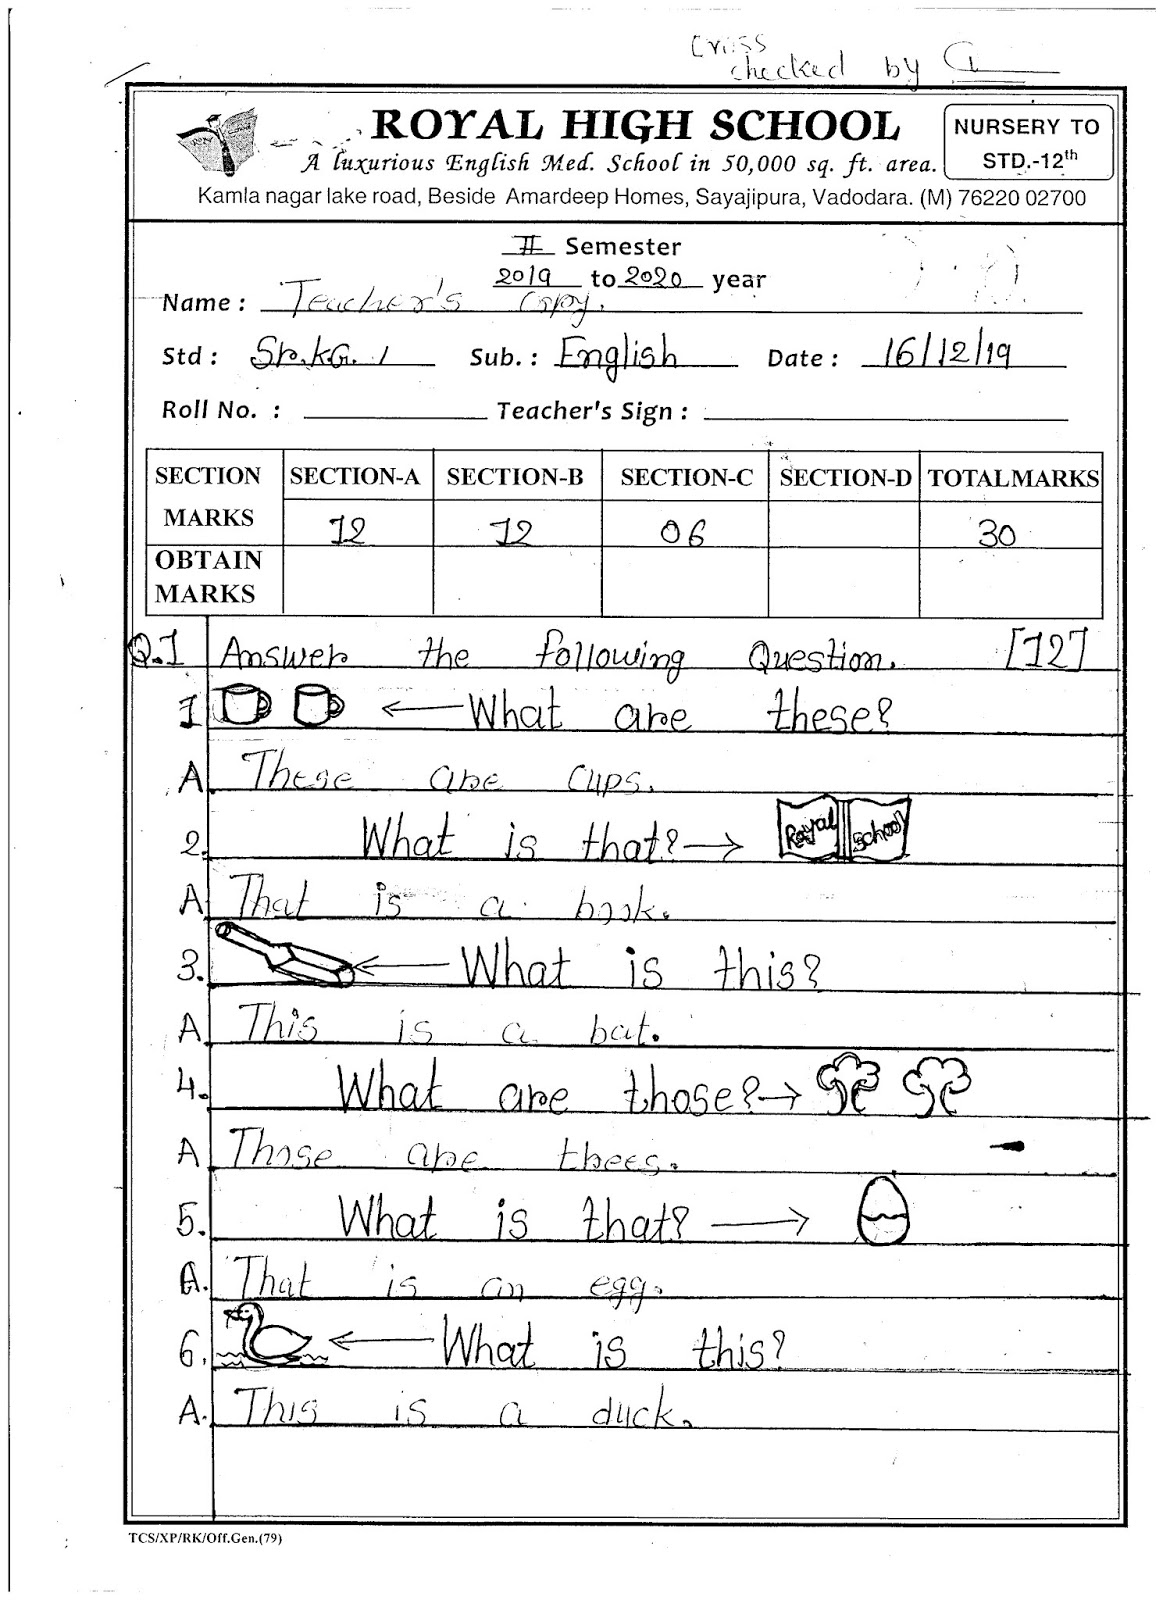 Cross
checked by
ROYAL HIGH SCHOOL
A luxurious English Med. School in 50,000 sq. ft. area.
NURSERY TO
STD.-12th
Kamla nagar lake road, Beside Amardeep Homes, Sayajipura, Vadodara. (M) 76220 02700
II Semester
2019 to 2020 year
Name : Teacher's copy.
Std : Sr.KG. 1 Sub. : English Date : 16/12/19
Roll No. : Teacher's Sign :
SECTION SECTION-A SECTION-B SECTION-C SECTION-D TOTAL MARKS
MARKS 12 12 06 30
OBTAIN
MARKS
Q.1 Answer the following Question. [12]
1 What are these?
A These are cups.
2. What is that?
Royal School
A That is a book.
3. What is this?
A This is a bat.
4. What are those?
A Those are trees.
5. What is that?
A. That is an egg.
6. What is this?
A. This is a duck.
TCS/XP/RK/Off.Gen.(79)